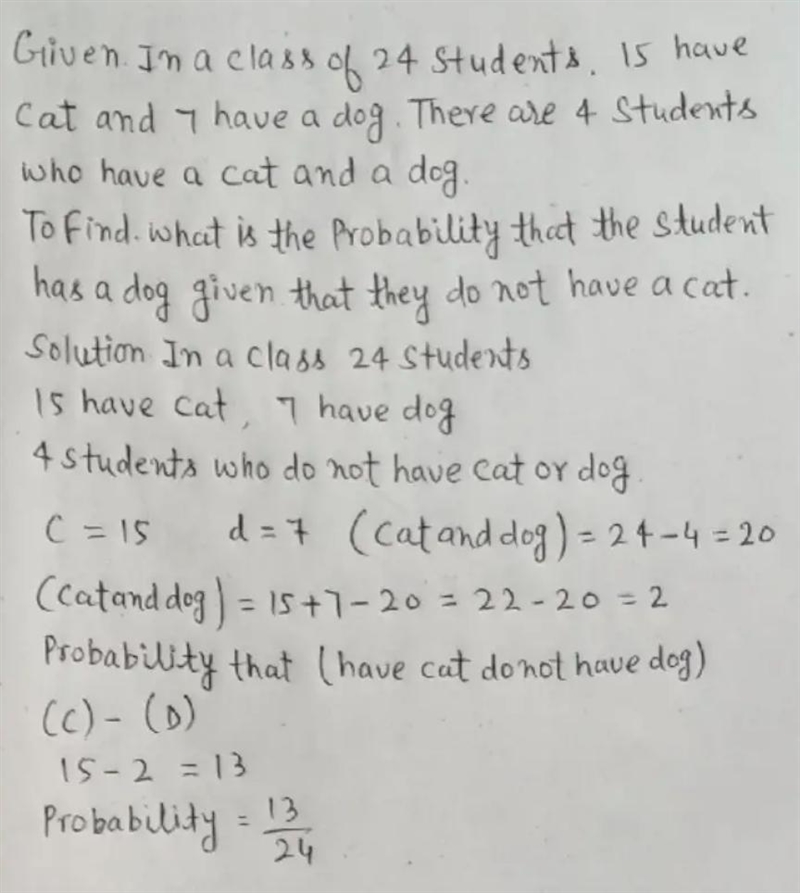 Given. In a class of 24 students. 15 have
Cat and 7 have a dog. There are 4 Students
who have a cat and a dog.
To find. what is the Probability that the student
has a dog given that they do not have a cat.
Solution In a class 24 students
15 have cat, 7 have dog
4 students who do not have cat or dog.
C = 15 d = 7 (Cat and dog) = 24 - 4 = 20
(Cat and dog) = 15 + 7 - 20 = 22 - 20 = 2
Probability that (have cat do not have dog)
(C) - (D)
15 - 2 = 13
Probability = 13/24